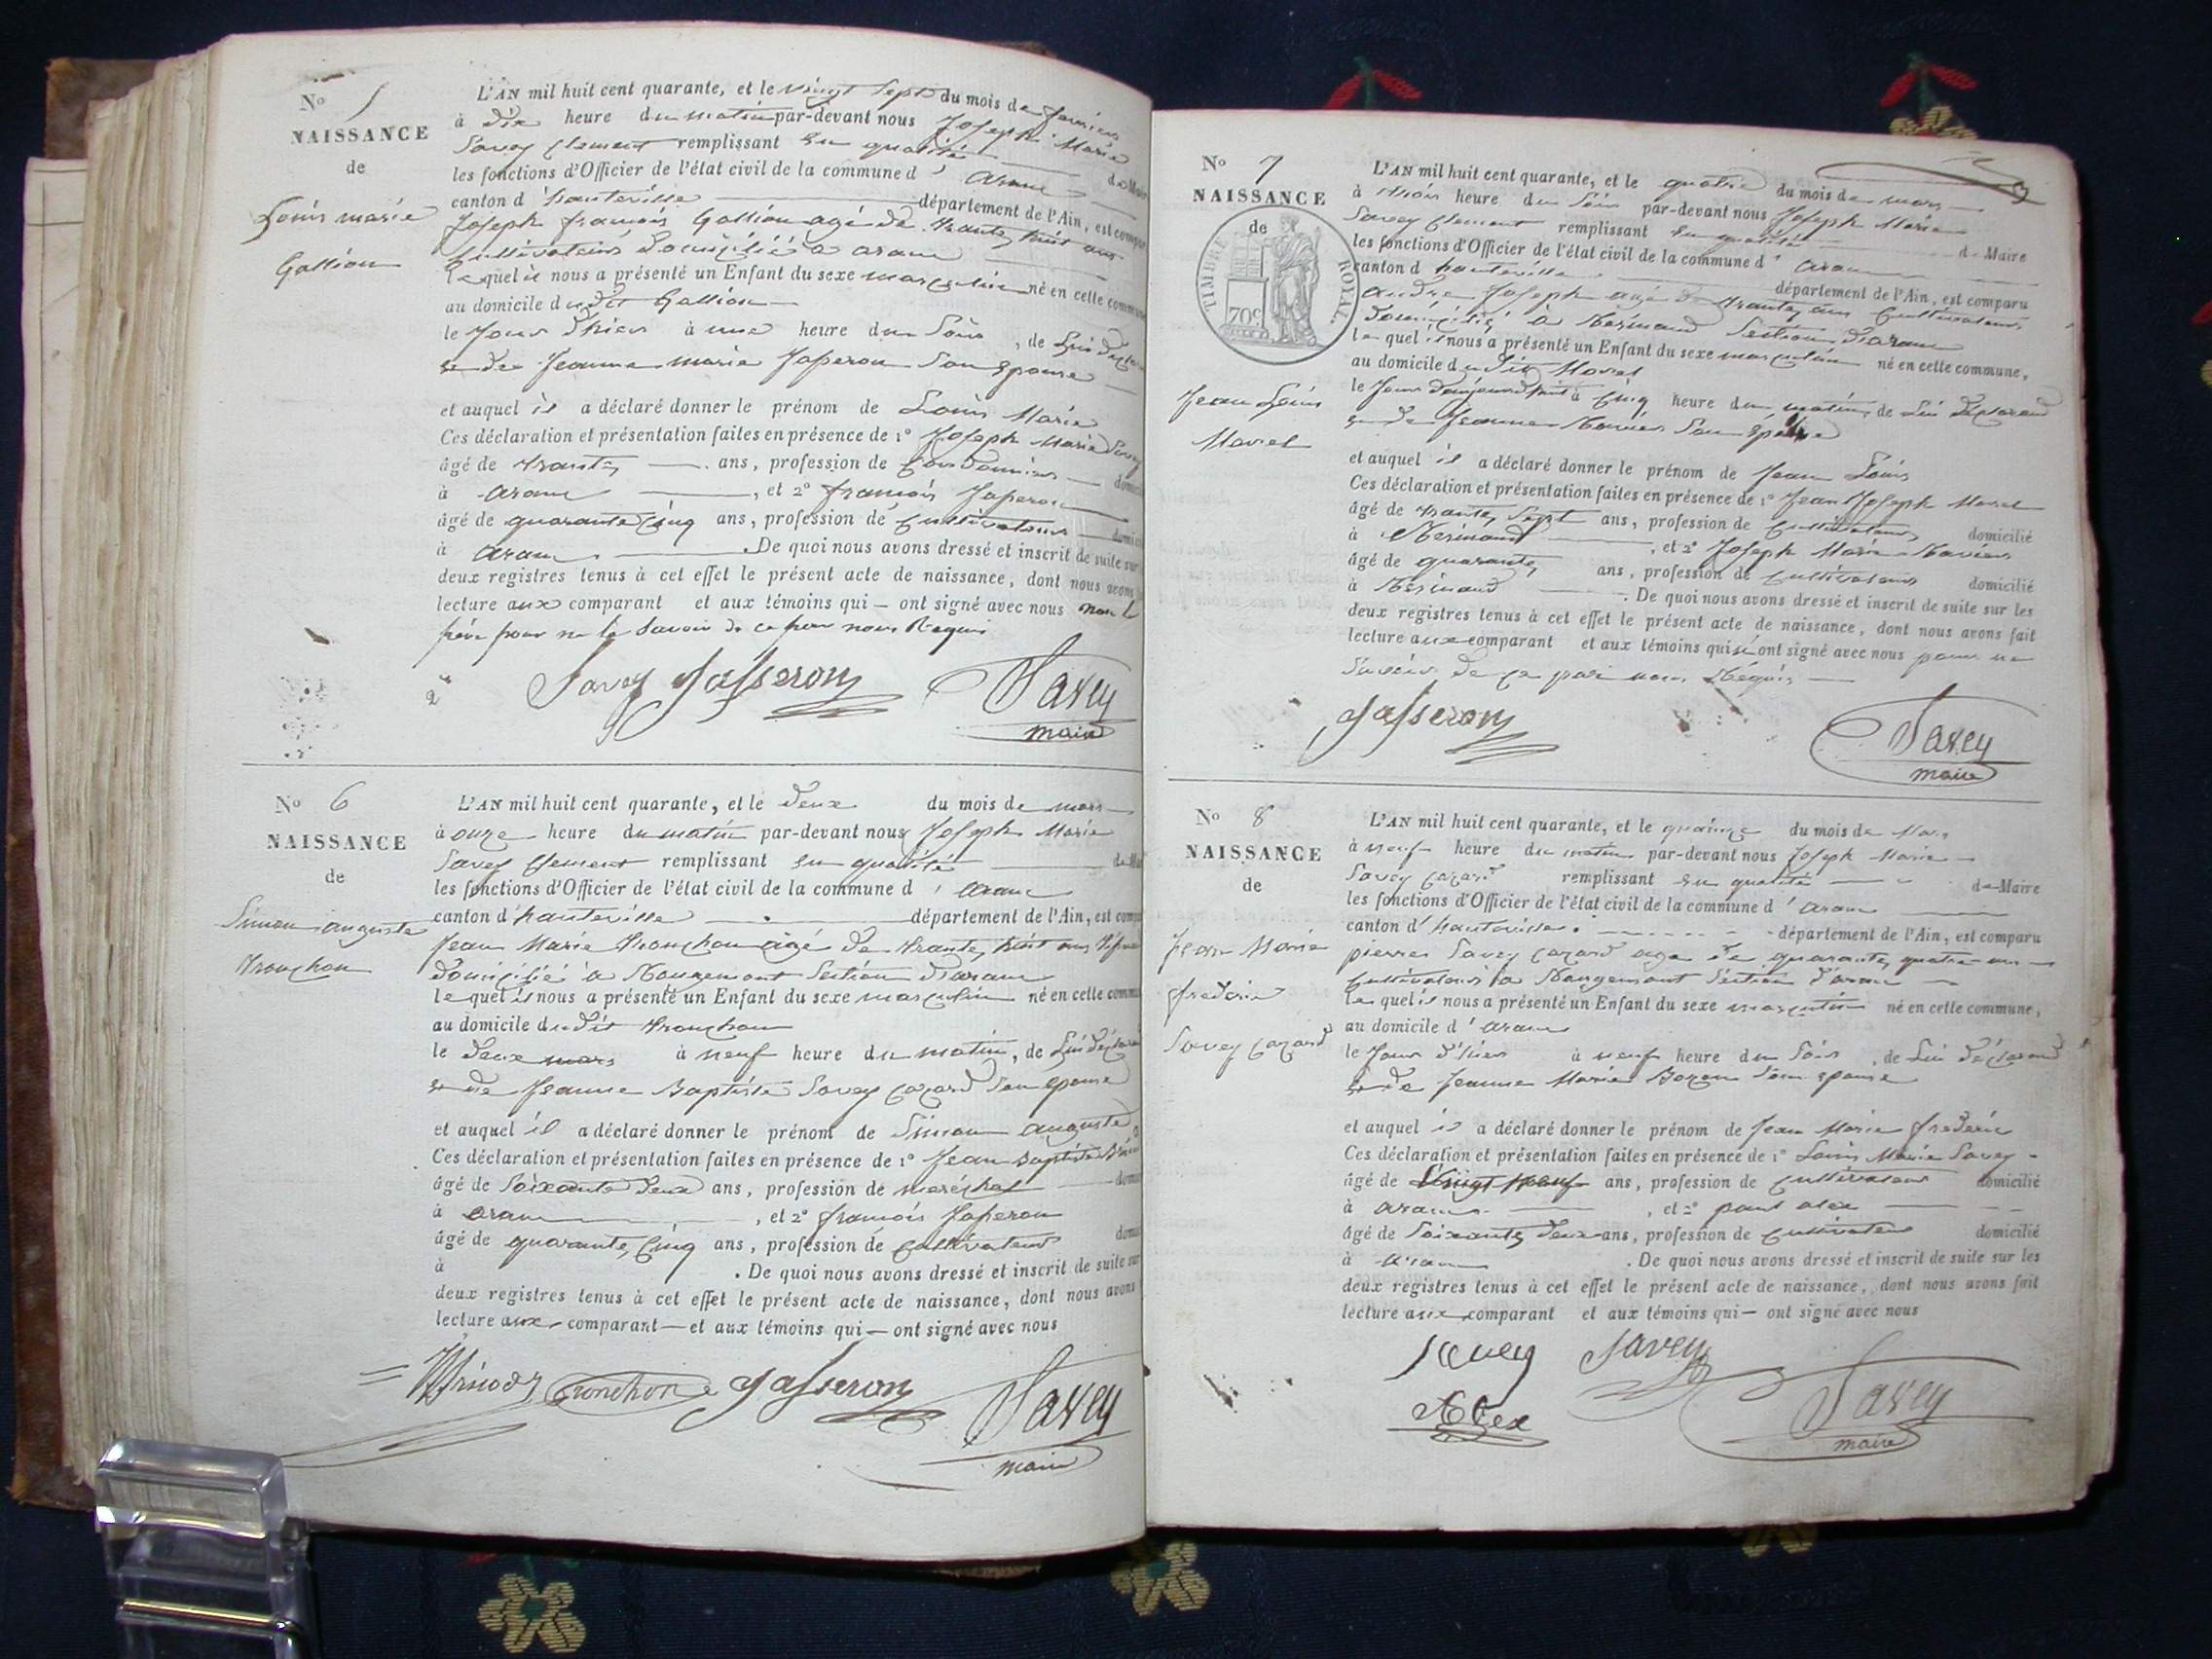 N° 5
NAISSANCE
de
Louis marie
Gallion
L'AN mil huit cent quarante, et le vingt sept du mois de janvier
à dix heure du matin par-devant nous Joseph Marie
Savey Clement remplissant en qualité de Maire
les fonctions d'Officier de l'état civil de la commune d' aranc
canton d'hauteville département de l'Ain, est comparu
Joseph françois Gallion agé de trante huit ans
cultivateur domicilié a aranc
lequel il nous a présenté un Enfant du sexe masculin né en cette commune
au domicile du dit Gallion
le jour d'hier à une heure du soir, de lui déclarant
et de Jeanne marie Jasseron son épouse
et auquel il a déclaré donner le prénom de Louis Marie
Ces déclaration et présentation faites en présence de 1° Joseph Marie Savey
âgé de trante ans, profession de cordonnier domicilié
à aranc, et 2° françois Jasseron
âgé de quarante cinq ans, profession de cultivateur domicilié
à aranc. De quoi nous avons dressé et inscrit de suite sur
deux registres tenus à cet effet le présent acte de naissance, dont nous avons
lecture aux comparant et aux témoins qui — ont signé avec nous non le
père pour ne le savoir de ce par nous Requis
Savey Jasseron Savey
maire
N° 6
NAISSANCE
de
Simon auguste
tronchon
L'AN mil huit cent quarante, et le deux du mois de mars
à onze heure du matin par-devant nous Joseph Marie
Savey Clement remplissant en qualité de Maire
les fonctions d'Officier de l'état civil de la commune d' aranc
canton d'hauteville département de l'Ain, est comparu
Jean Marie tronchon agé de trante huit ans
domicilié a Rougemont section d'aranc
lequel il nous a présenté un Enfant du sexe masculin né en cette commune
au domicile du dit tronchon
le deux mars à neuf heure du matin, de lui déclarant
et de Jeanne Baptiste Savey cazard son épouse
et auquel il a déclaré donner le prénom de Simon auguste
Ces déclaration et présentation faites en présence de 1° Jean Baptiste
âgé de soixante deux ans, profession de maréchal domicilié
à aranc, et 2° françois Jasseron
âgé de quarante cinq ans, profession de cultivateur domicilié
à . De quoi nous avons dressé et inscrit de suite sur
deux registres tenus à cet effet le présent acte de naissance, dont nous avons
lecture aux comparant — et aux témoins qui — ont signé avec nous
tronchon Jasseron Savey
maire
N° 7
NAISSANCE
de
TIMBRE ROYAL.
70c
Jean Louis
Morel
L'AN mil huit cent quarante, et le quatre du mois de mars
à trois heure du soir par-devant nous Joseph Marie
Savey Clement remplissant en qualité de Maire
les fonctions d'Officier de l'état civil de la commune d' aranc
canton d hauteville département de l'Ain, est comparu
andré Joseph agé de trante ans cultivateur
domicilié à Résinand section d'aranc
lequel il nous a présenté un Enfant du sexe masculin né en cette commune,
au domicile du dit Morel
le jour d'aujourd'hui à cinq heure du matin, de lui déclarant
et de Jeanne son épouse
et auquel il a déclaré donner le prénom de Jean Louis
Ces déclaration et présentation faites en présence de 1° Jean Joseph Morel
âgé de trante sept ans, profession de cultivateur domicilié
à Résinand, et 2° Joseph Marie
âgé de quarante ans, profession de cultivateur domicilié
à Résinand. De quoi nous avons dressé et inscrit de suite sur les
deux registres tenus à cet effet le présent acte de naissance, dont nous avons fait
lecture aux comparant et aux témoins qui ont signé avec nous pour ne
savoir de ce par nous Réquis
Jasseron Savey
maire
N° 8
NAISSANCE
de
Jean Marie
frederic
Savey cazard
L'AN mil huit cent quarante, et le quainze du mois de Mars
à neuf heure du matin par-devant nous Joseph Marie
Savey cazard remplissant en qualité de Maire
les fonctions d'Officier de l'état civil de la commune d' aranc
canton d' hauteville département de l'Ain, est comparu
pierre Savey cazard agé de quarante quatre ans
cultivateur a Rougemont section d'aranc
lequel il nous a présenté un Enfant du sexe masculin né en cette commune,
au domicile d' aranc
le jour d'hier à neuf heure du soir, de lui déclarant
et de Jeanne Marie Bozon son epouse
et auquel il a déclaré donner le prénom de Jean Marie frederic
Ces déclaration et présentation faites en présence de 1° Louis Marie Savey
âgé de vingt neuf ans, profession de cultivateur domicilié
à aranc, et 2° paul alex
âgé de soixante deux ans, profession de cultivateur domicilié
à aranc. De quoi nous avons dressé et inscrit de suite sur les
deux registres tenus à cet effet le présent acte de naissance, dont nous avons fait
lecture aux comparant et aux témoins qui — ont signé avec nous
Savey Savey
Alex Savey
maire